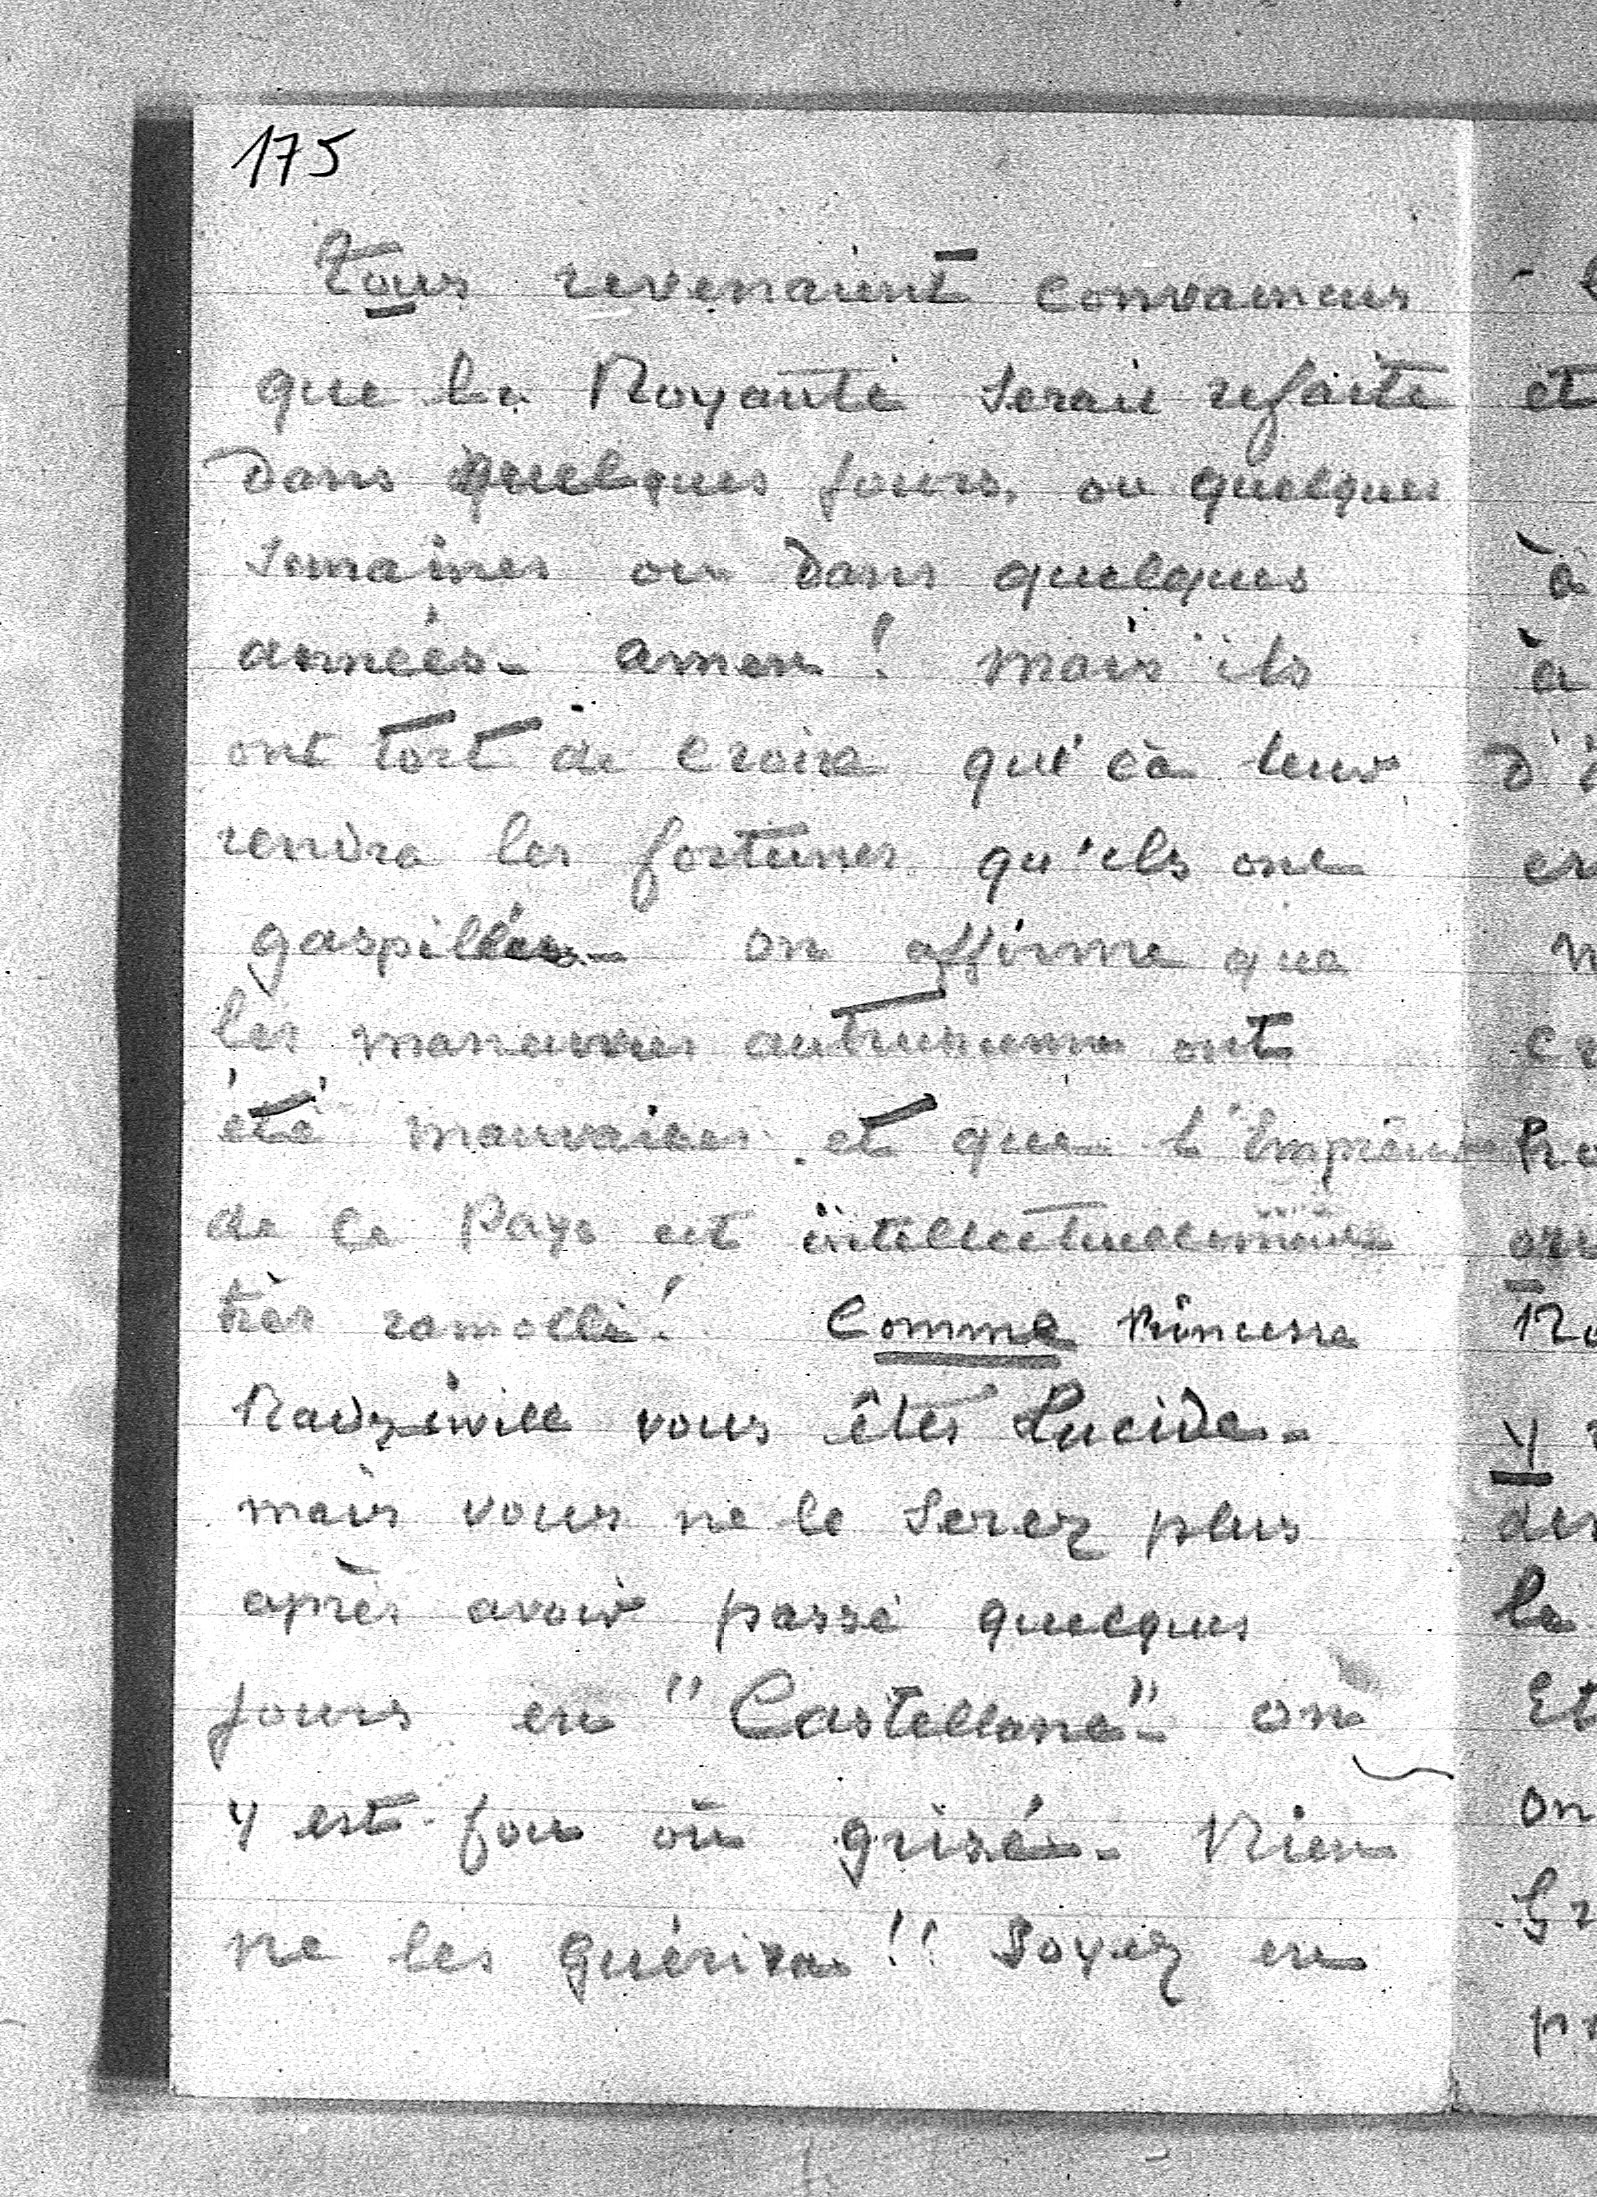 175
Tous revenaient convaincus
que la Royauté serait refaite
dans quelques jours, ou quelques
semaines ou dans quelques
années. amen! mais ils
ont tort de croire que cà leur
rendra les fortunes qu'ils ont
gaspillées. on affirme que
les manœuvres autrichiennes ont
été mauvaises et que l'Empereur
de ce Pays est intellectuellement
très ramolli! Comme Princesse
Radziwill vous êtes Lucide.
mais vous ne le serez plus
après avoir passé quelques
jours en "Castellane". on
y est fou ou grisé. Rien
ne les guérira!! Soyez en